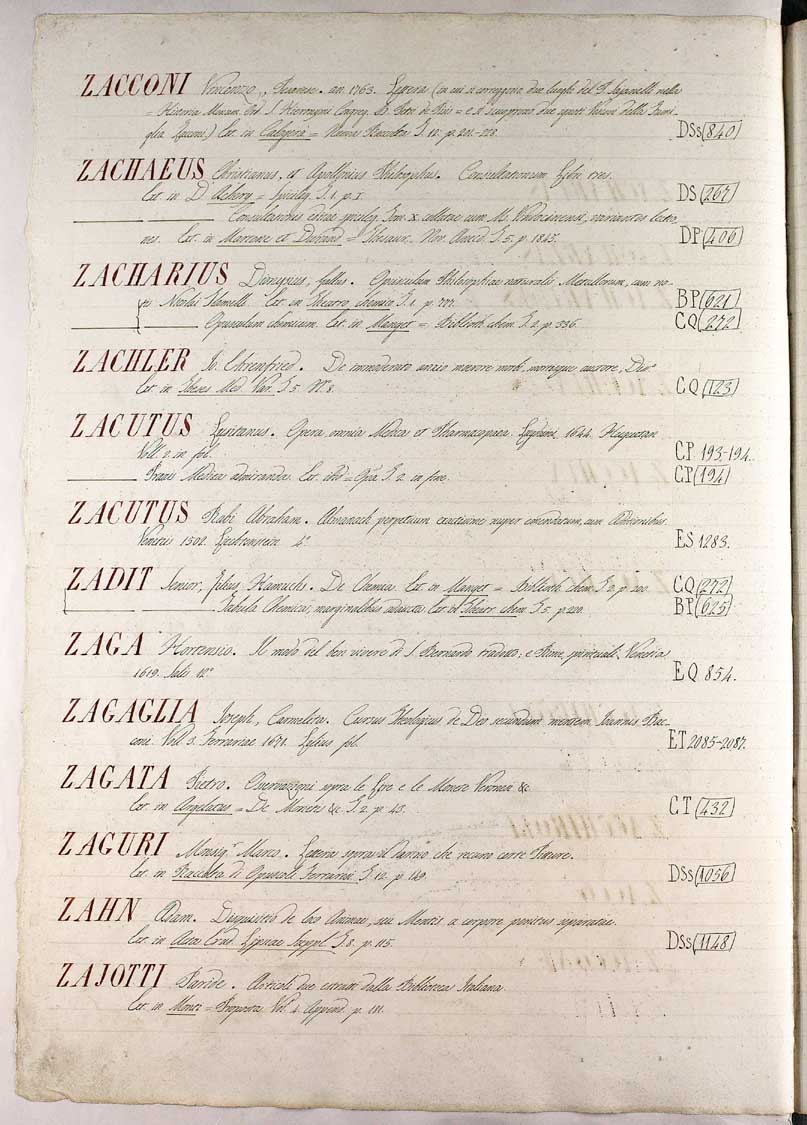 ZACCONI Vincenzo, Pesarese. an. 1763. Lettera (in cui si correggono due luoghi del P. Sajanelli nella
= Historia Monum. Ord. S. Hieronymi Congreg. B. Petri de Pisis = e si scuoprono due ignoti Vescovi della Fami-
glia Zacconi) Ext. in Calogerà = Nuova Raccolta T. 12. p. 201-228. DSs (840)
ZACHAEUS Christianus, et Apollonius Philosophus. Consultationum Libri tres.
Ext. in D'Achery = Spicileg. T. 1. p. 1. DS (267)
Consultationibus editis spicileg. Tom. X. collatae cum M. Vindocinensi, variantes lectio-
nes. Ext. in Martene et Durand = Thesaur. Nov. Anecd. T. 5. p. DP (406)
ZACHARIUS Dionysius, Gallus. Opusculum Philosophiae naturalis Metallorum, cum no-
tis Nicolai Flamelli. Ext. in Theatro chemico T. 1. p. BP (621)
Opusculum chimicum. Ext. in Manget = Biblioth. chem. T. 2. p. 336. CQ (272)
ZACHLER Jo. Ehrenfried. De immoderato anxio maerore
Ext. in Theses Med. Var. T. 5. N.° 8. CQ (123)
ZACUTUS Lusitanus. Opera omnia Medica et Pharmacopaea. Lugduni, 1644. Huguetan
Voll. 2. in fol. CP 193-194.
Praxis Medica admiranda. Ext. ibid. = Opra T. 2. in fine. CP (194)
ZACUTUS Rabi Abraham. Almanach perpetuum exactissime nuper emendatum, cum Additionibus.
Venetiis 1502. Liechtenstein 4.° ES 1283.
ZADIT Senior, filius Hamuelis. De Chemia. Ext. in Manget = Biblioth. chem. T. 2. p. CQ (272)
Tabula Chemica, marginalibus adaucta. Ext. in Theatr. chem. T. 5. p. BP (625)
ZAGA Hortensio. Il modo del ben vivere di S. Bernardo tradotto; e Rime spirituali. Venetia
1619. Salis 12.° EQ 854.
ZAGAGLIA Joseph, Carmelita. Cursus Theologicus de Deo secundum mentem Joannis Bac-
coni. Voll. 3. Ferrariae 1671. fol. ET 2085-2087.
ZAGATA Pietro. Osservazioni sopra le Lire e le Monete Veronesi &c.
Ext. in Argelatus = De Monetis &c. T. 2. p. 43. CT (432)
ZAGURI Monsig.r Marco. Lettera sopra
Ext. in Raccolta di Opuscoli Ferrarini T. 12. p. DSs (1056)
ZAHN Adam. Disquisitio de loco Animae, seu Mentis a corpore penitus separatae.
Ext. in Actis Erud. Lipsiae Suppl. T. 8. p. 115. DSs (1148)
ZAJOTTI Paride. Articoli due estratti dalla Biblioteca Italiana.
Ext. in Monti = Proposta Vol. 4. Append. p. 181.